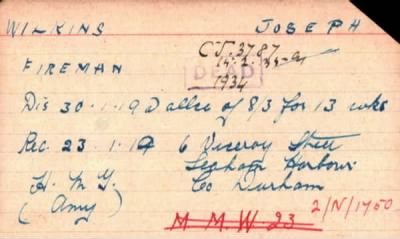 WILKINS JOSEPH
C.J. 3787
FIREMAN
DEAD
1934
Dis 30-1-19 D allce of 8/3 for 13 wks
Rec. 23-1-19 6 Viceroy Street
Seaham Harbour
H. M. Y. Co Durham
(Amy)
M M W 23 2/N/1750